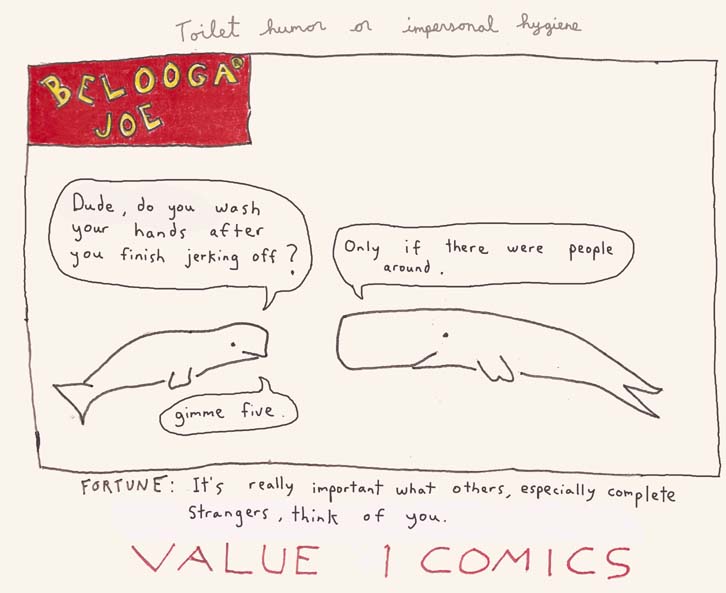 Toilet humor or impersonal hygiene
BELOOGA®
JOE
Dude, do you wash
your hands after
you finish jerking off?
Only if there were people
around.
gimme five.
FORTUNE: It's really important what others, especially complete
Strangers, think of you.
VALUE 1 COMICS